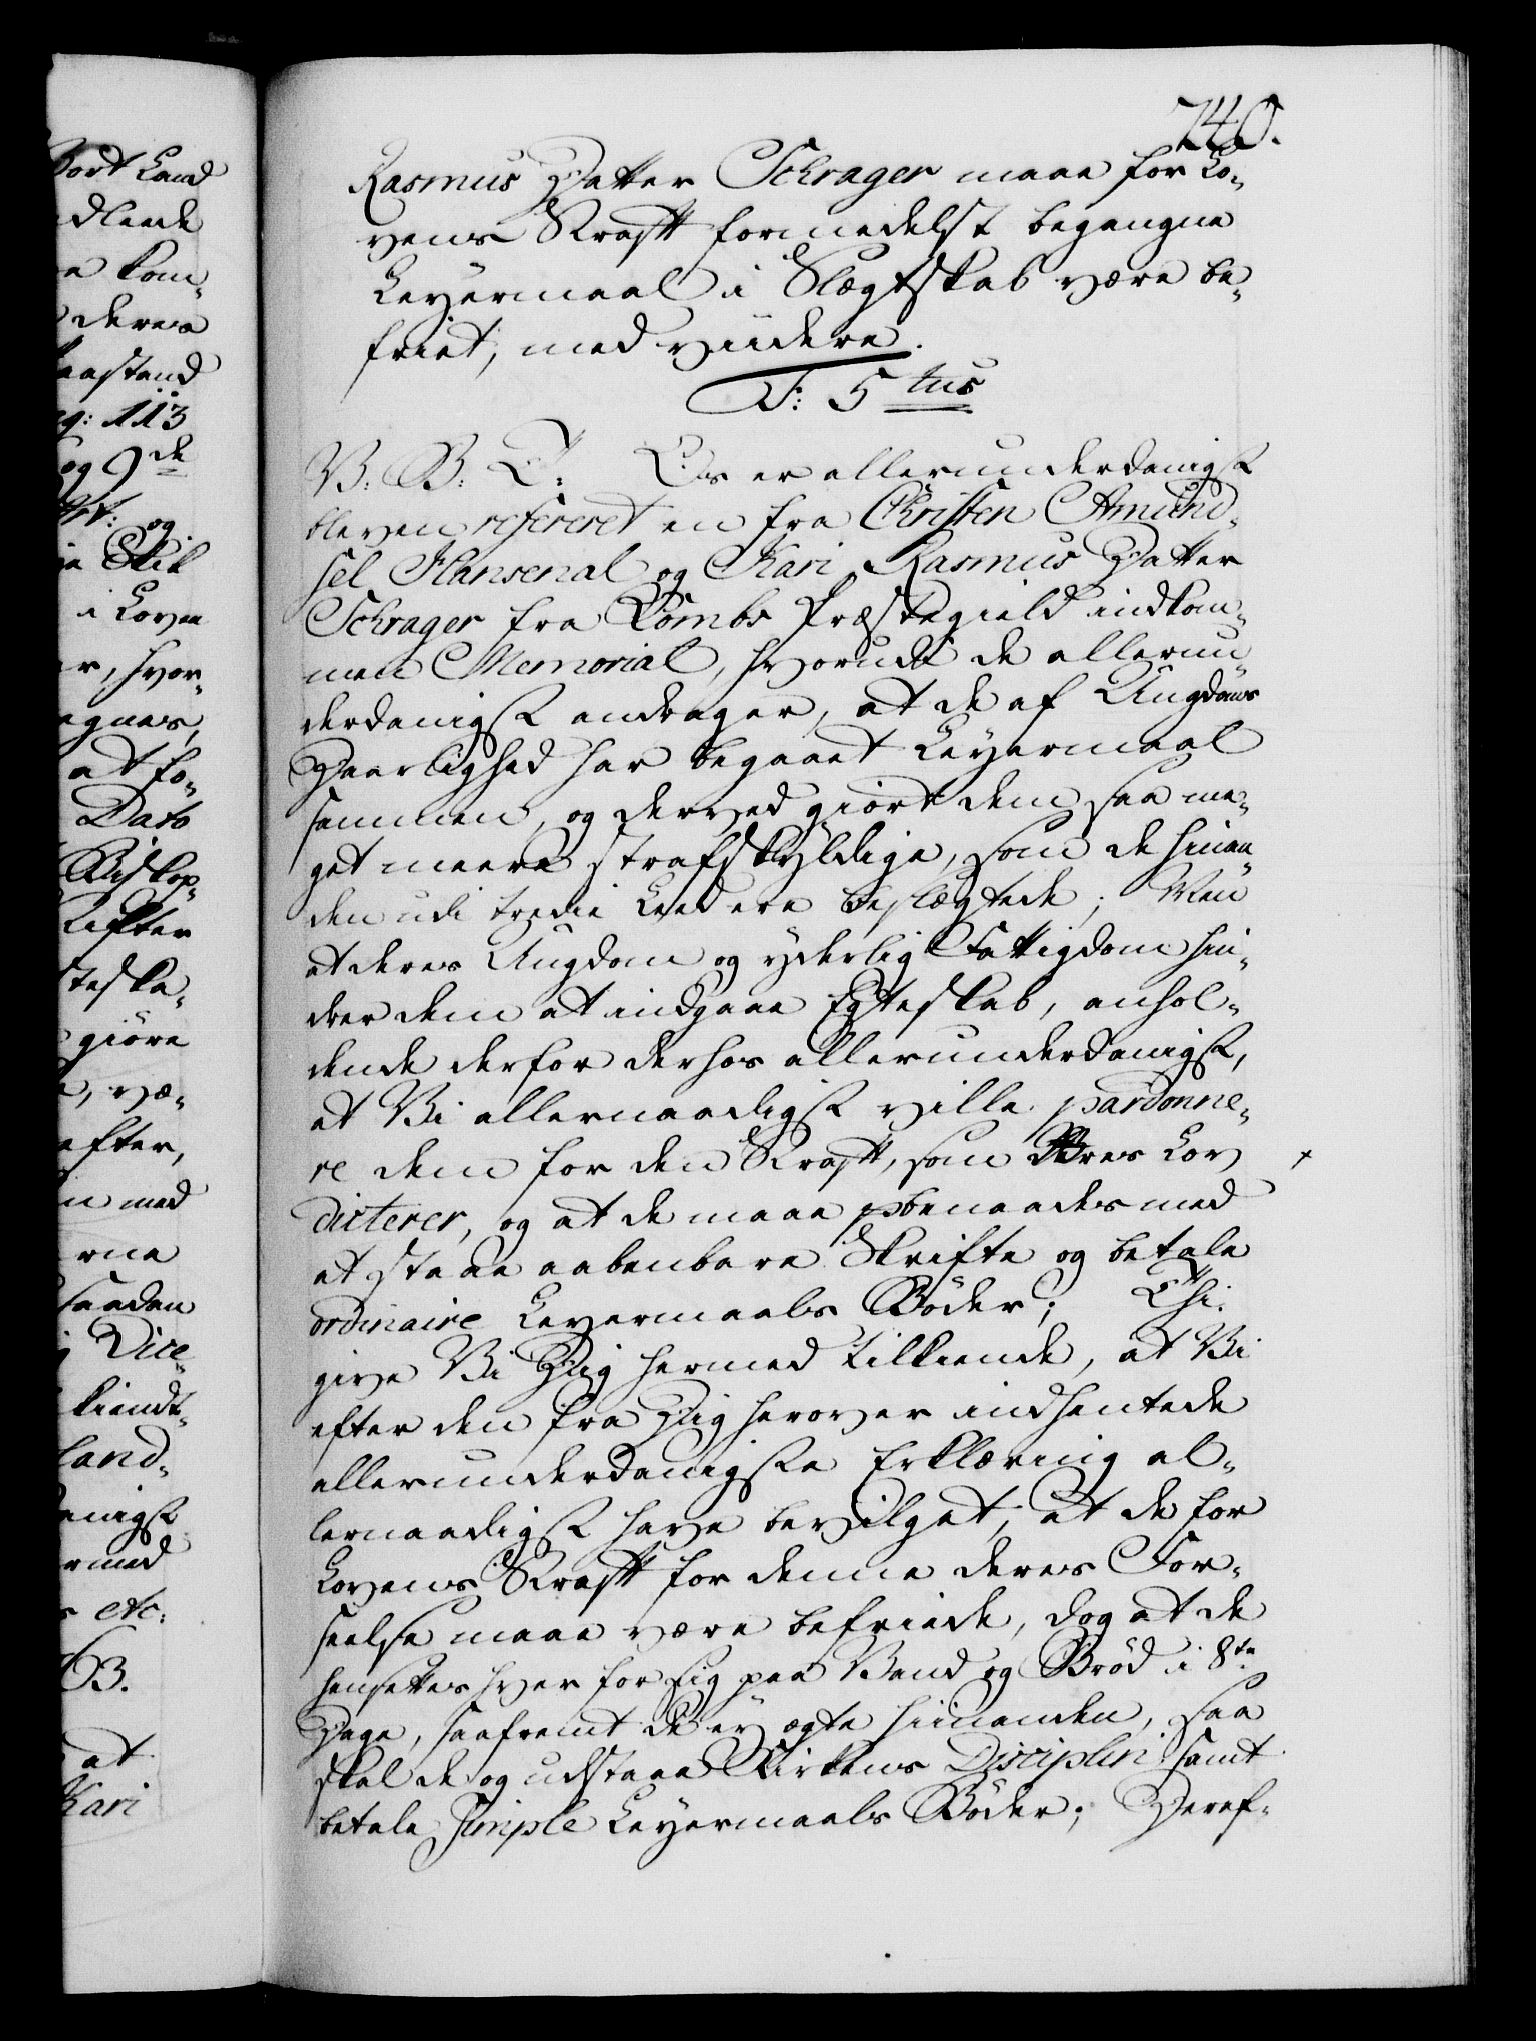 740.
Rasmus Datter Schrager maae for Lo,
vens Straff formedelst begangne
Leyermaal i Slægtskab være be,
friet, med viidere.
F: 5tus
V. G: T: Os er allerunderdanigst
bleven refereret en fra Christen Amund,
sel Hansenal og Kari Rasmus Datter
Schrager fra Lombs Præstegield indkom,
men Memorial, hvorudi de allerun,
derdanigst andrager, at de af Ungdoms
Daarlighed har begaaet Leyermaal
sammen, og derved giort dem saa me,
get meere strafskyldige, som de hinan,
den udi tredie Leed ere beslægtede; Men
at deres Ungdom og yderlig Fattigdom hin,
drer dem at indgaae Egteskab, anhol,
dende derfor derhos allerunderdanigst,
at Vi allernaadigst ville pardonne,
re dem for den Straff, som Vores Lov
dicterer, og at de maae benaades med
at staae aabenbare Skrifte og betale
ordinaire Leyermaals Bøder; Thi
give Vi Dig hermed tilkiende, at Vi
efter den fra Dig herover indhentede
allerunderdanigste Erklæring al,
lernaadigst have bevilget, at de for
Lovens Straff for denne deres For,
seelse maae være befriede, dog at de
hensettes hver for sig paa Vand og Brød i 8te
Dage, saafremt de ey ægte hinanden, saa
skal de og udstaae Kirkens Disciplin samt
betale simple Leyermaals Bøder; Deref,
Land
deres
113
og 9de
og
i Loven
hvor,
at fo,
Dato
Biskop,
giöre
efter,
med
saadan
Vice
Land,
etc:
63.
at
Kari